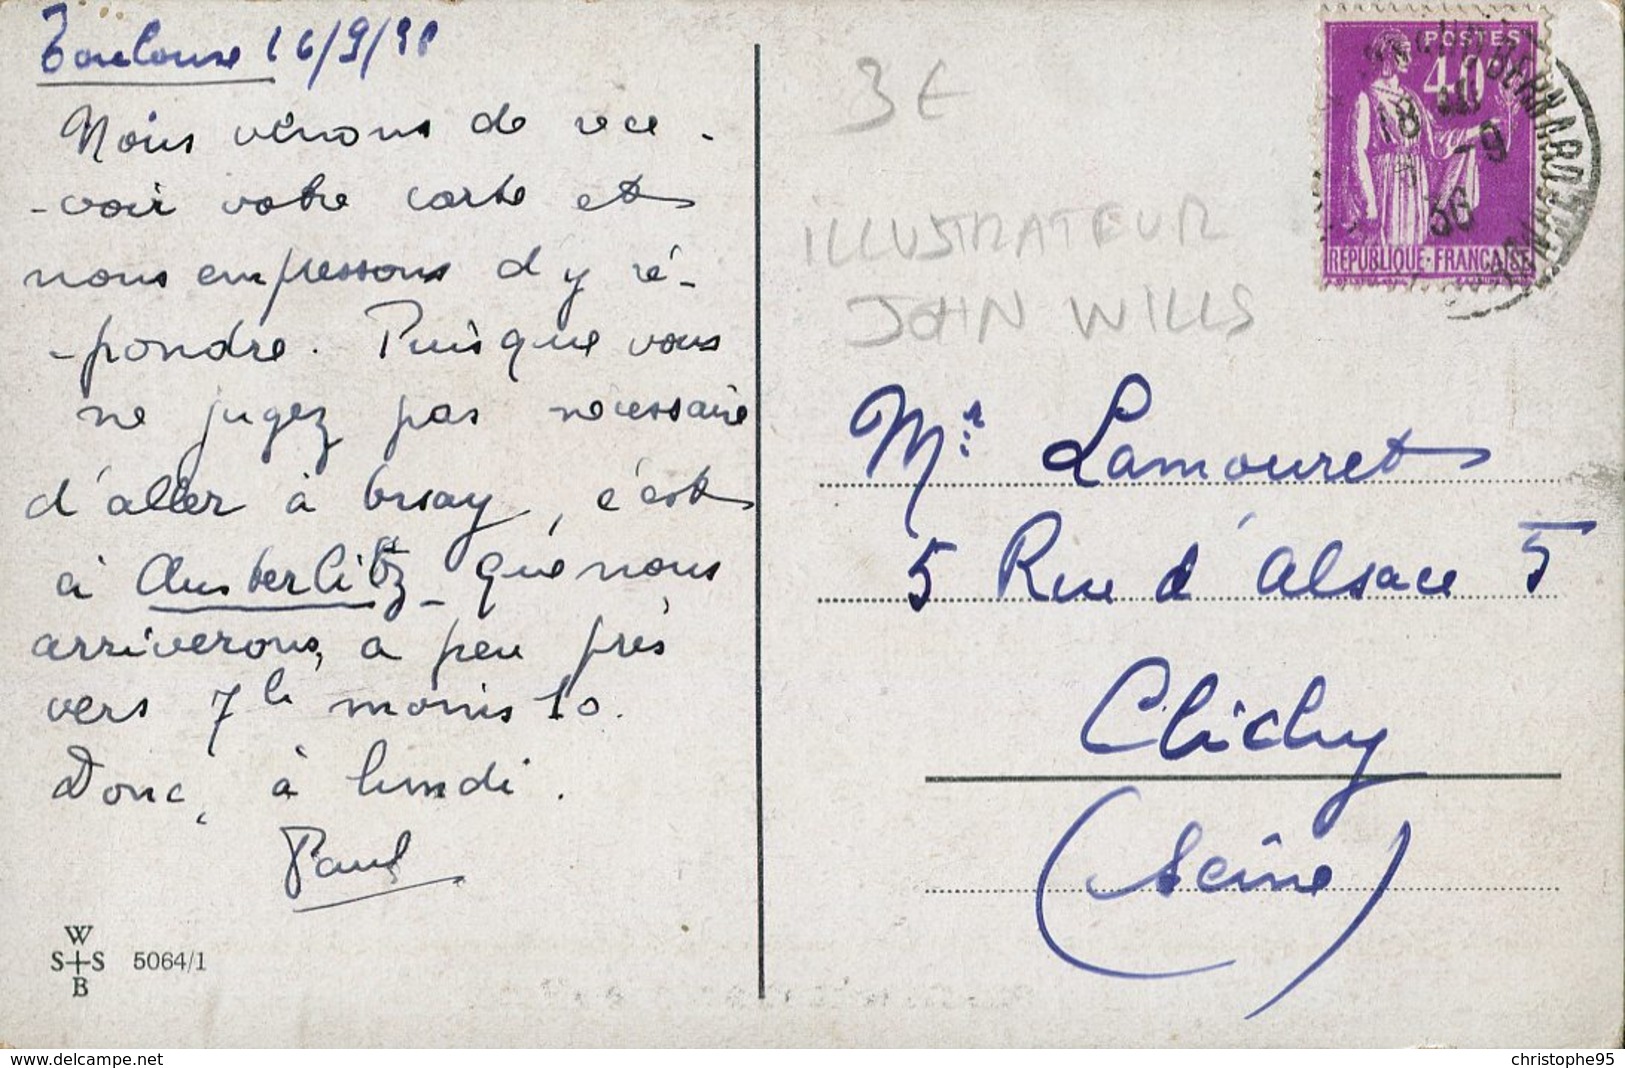 Toulouse 16/9/
Nous venons de rece-
-voir votre carte et
nous empressons d'y ré-
-pondre. Puisque vous
ne jugez pas nécessaire
d'aller à Orsay, c'est
à Austerlitz que nous
arriverons, a peu près
vers 7h moins 10.
Donc, à lundi.
Paul
W
S+S
B
5064/1
3€
ILLUSTRATEUR
JOHN WILLS
POSTES
40
18
-9
36
REPUBLIQUE FRANÇAISE
Mr Lamouret
5 Rue d'Alsace 5
Clichy
(Seine)
www.delcampe.net
christophe95